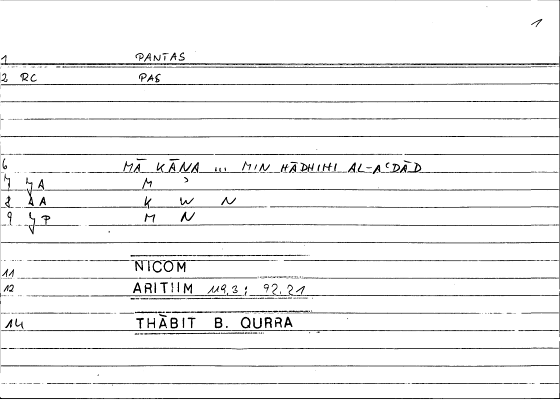 1
1 PANTAS
2 RC PAS
6 MĀ KĀNA ... MIN HĀDHIHI AL-AʿDĀD
7 JA M ʾ
8 AA K W N
9 JP M N
11 NICOM
12 ARITIIM 119,3; 92,21
14 THĀBIT B. QURRA